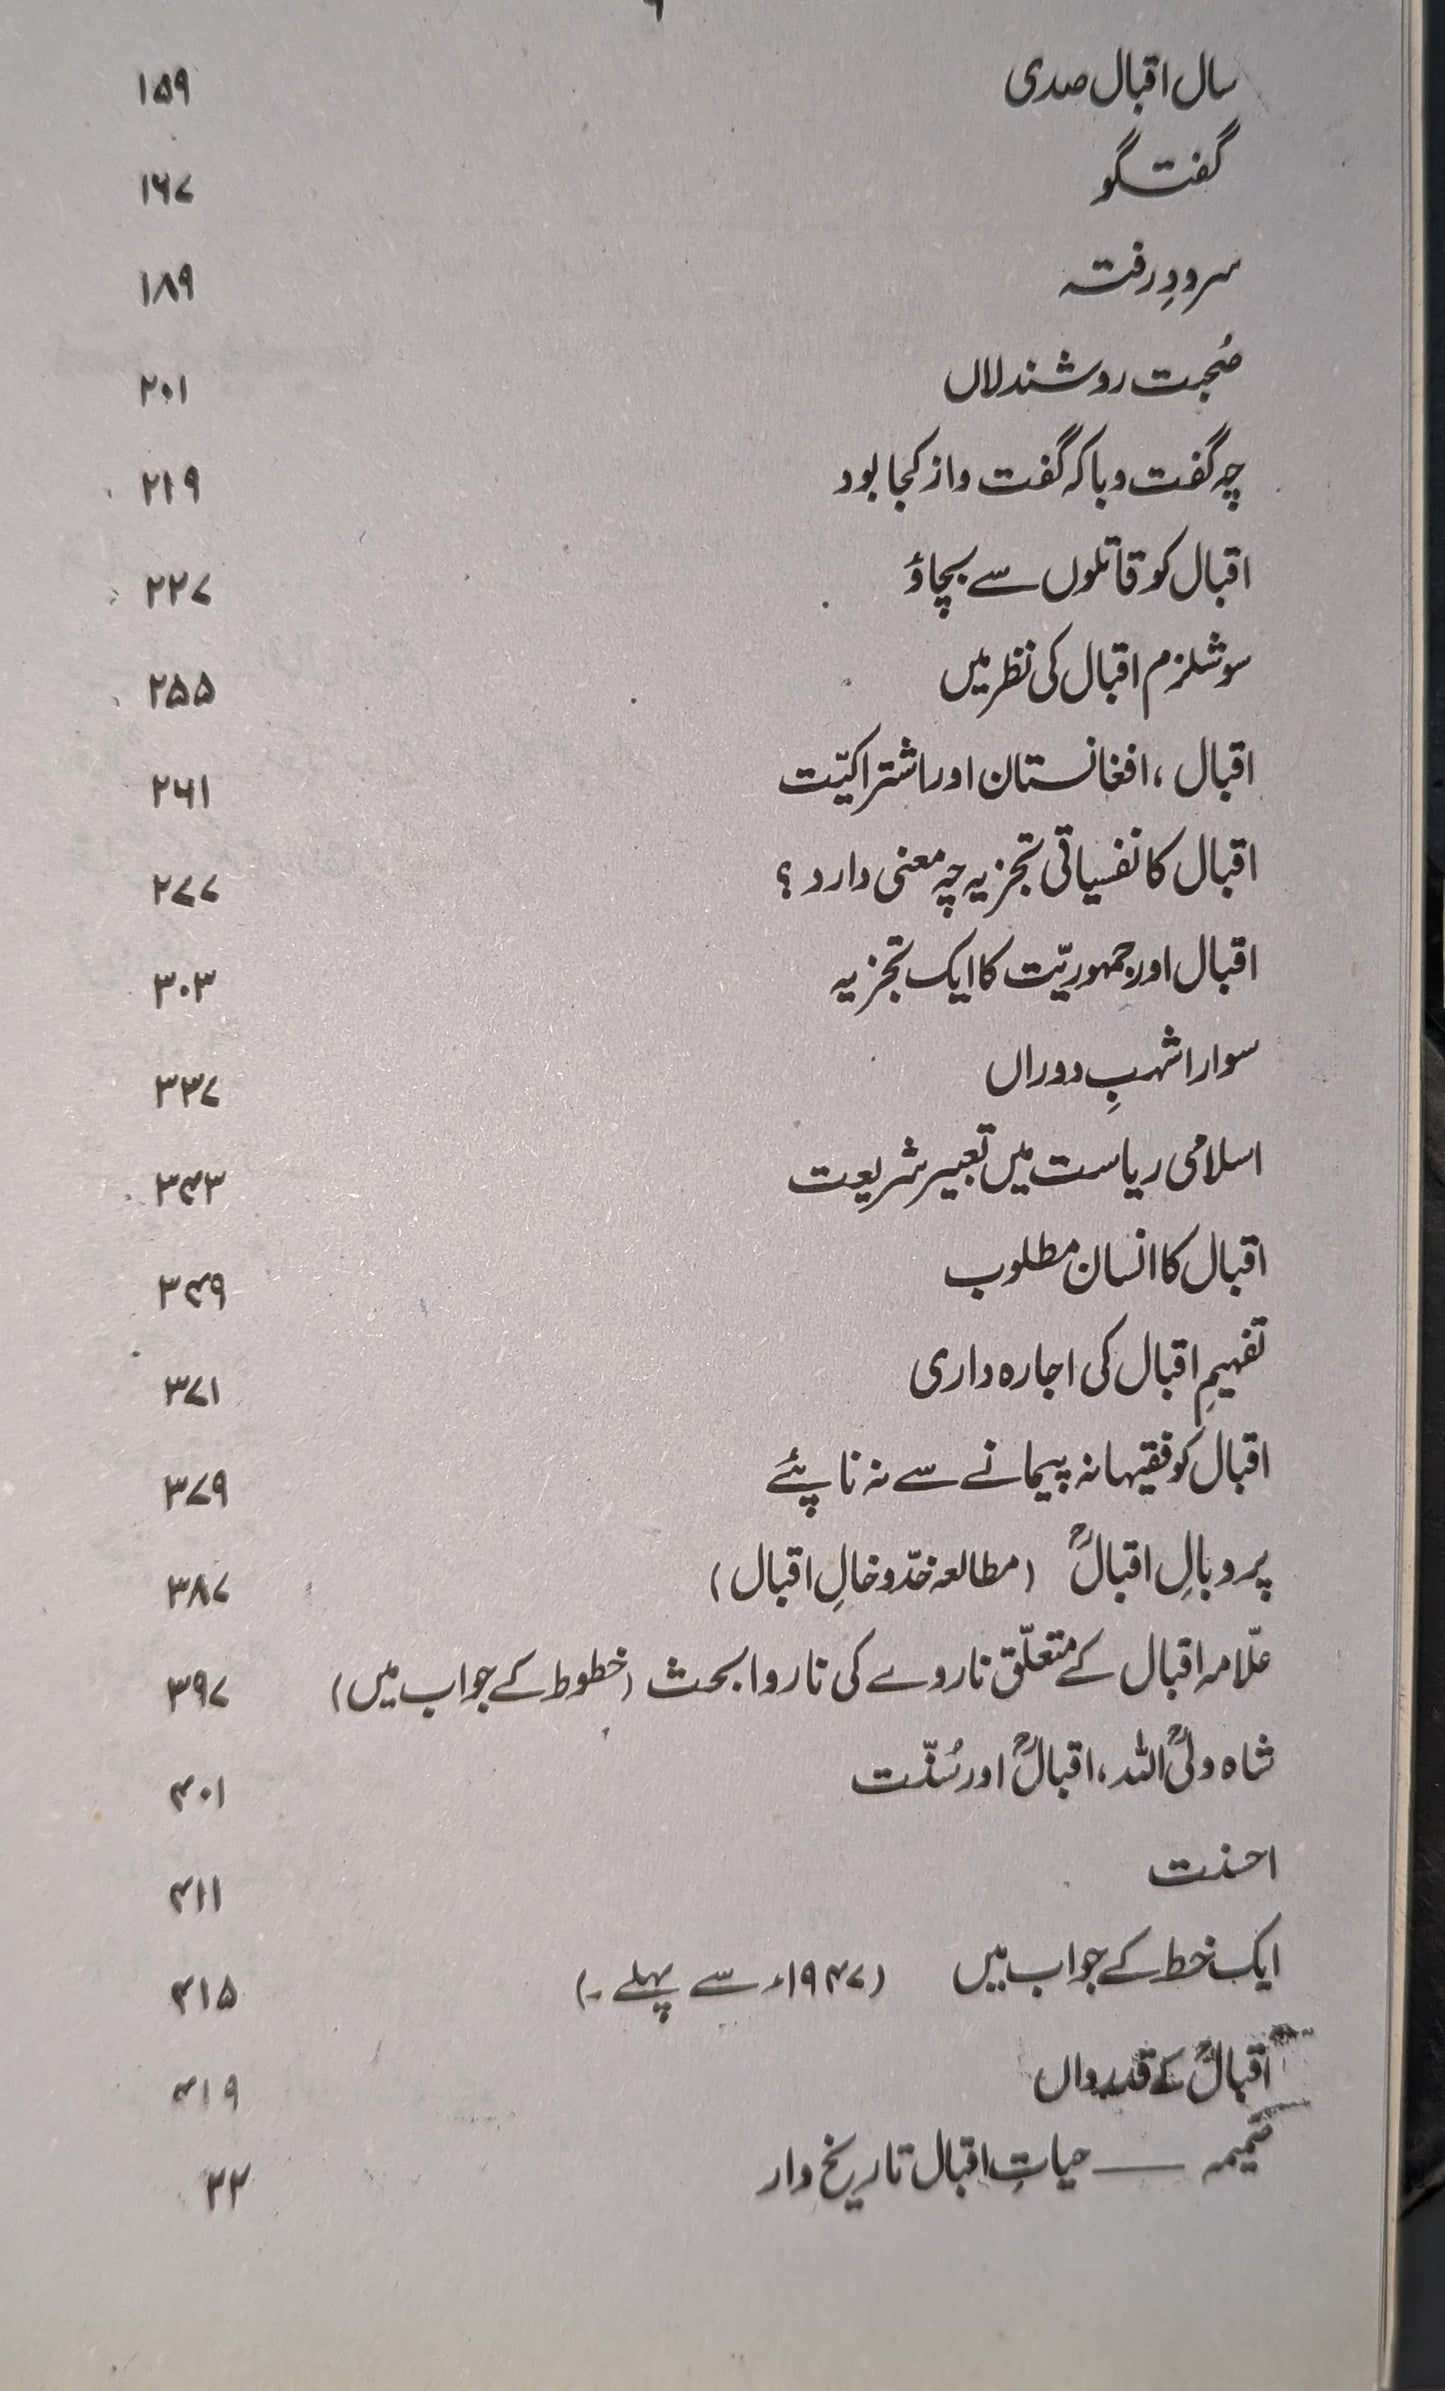 سال اقبال صدی ۱۵۹
گفتگو ۱۶۷
سرودِ رفتہ ۱۸۹
صُحبت روشندلاں ۲۰۱
چہ گفت و با کہ گفت و از کجا بود ۲۱۹
اقبال کو قاتلوں سے بچاؤ ۲۲۷
سوشلزم اقبال کی نظر میں ۲۵۵
اقبال ، افغانستان اور اشتراکیّت ۲۶۱
اقبال کا نفسیاتی تجزیہ چہ معنی دارد ؟ ۲۷۷
اقبال اور جمہوریّت کا ایک تجزیہ ۳۰۳
سوار اشہبِ دوراں ۳۳۷
اسلامی ریاست میں تعبیر شریعت ۳۴۳
اقبال کا انسان مطلوب ۳۴۹
تفہیمِ اقبال کی اجارہ داری ۳۷۱
اقبال کو فقیہانہ پیمانے سے نہ ناپئے ۳۷۹
پر و بالِ اقبالؒ (مطالعہ خدّ و خالِ اقبال) ۳۸۷
علّامہ اقبال کے متعلّق ناروے کی ناروا بحث (خطوط کے جواب میں) ۳۹۷
شاہ ولیؒ اللہ، اقبالؒ اور سُنّت ۴۰۱
احسنت ۴۱۱
ایک خط کے جواب میں (۱۹۴۷ء سے پہلے ۔) ۴۱۵
اقبالؒ کے قدرداں ۴۱۹
ضمیمہ —— حیاتِ اقبال تاریخ وار ۲۲